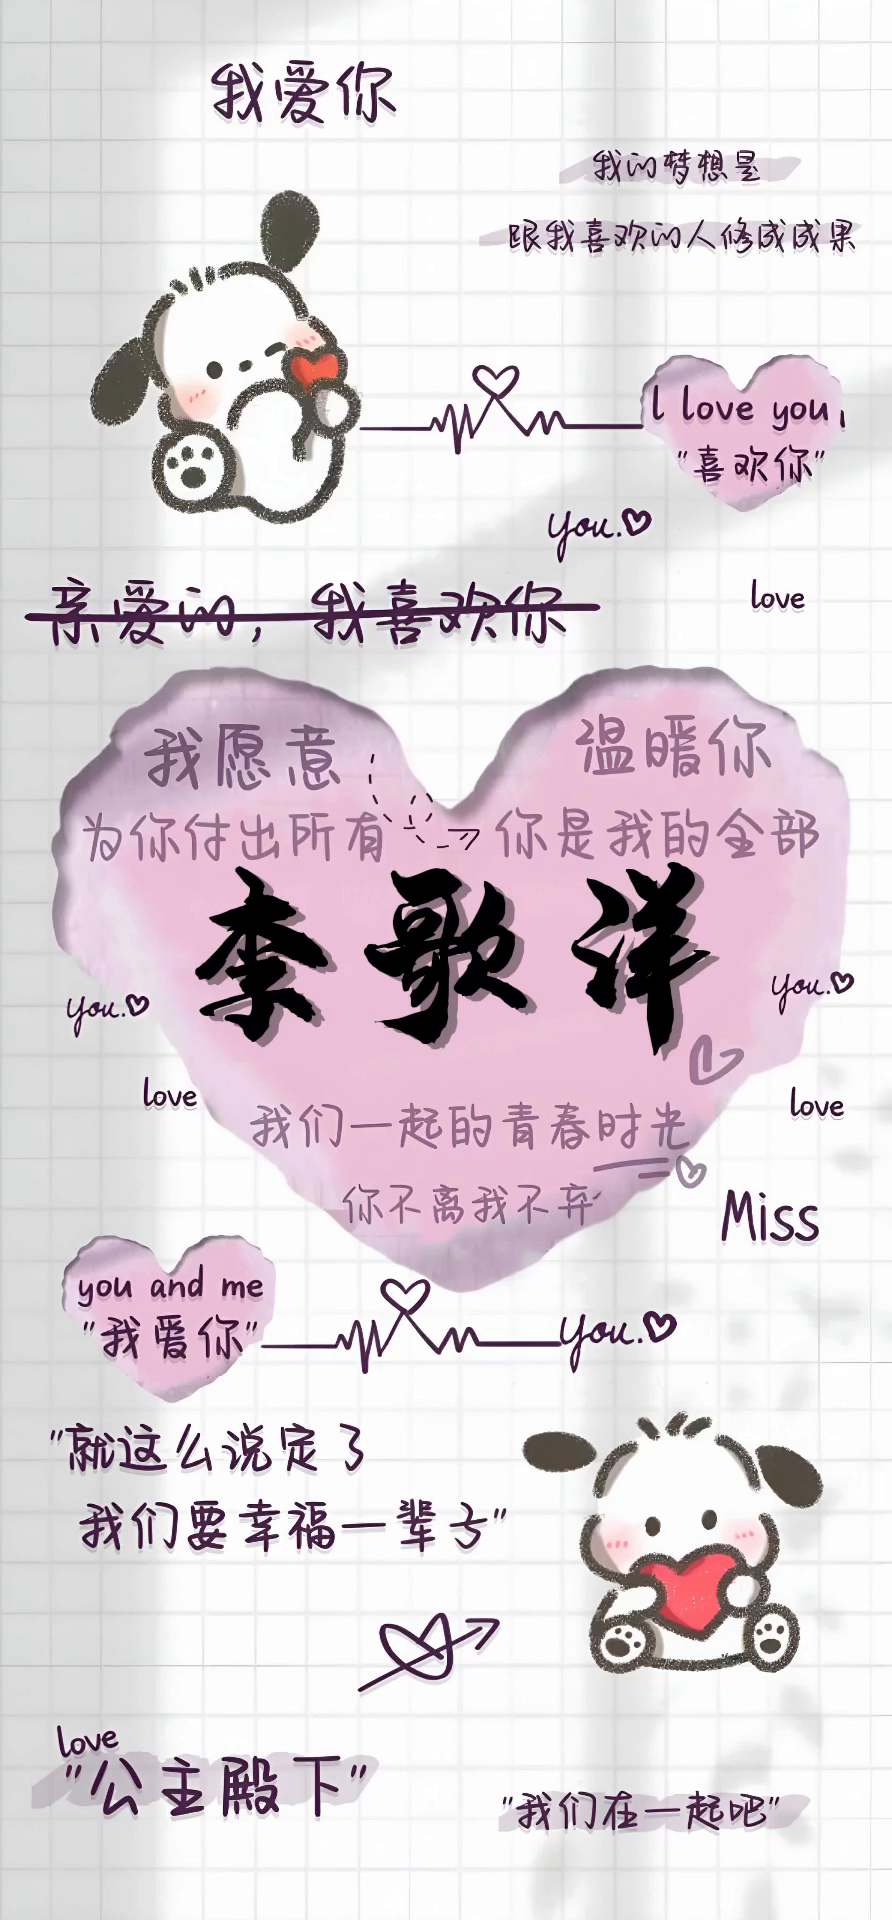 我爱你
我的梦想是
跟我喜欢的人修成成果
l love you,
"喜欢你"
you.
love
亲爱的，我喜欢你
我愿意
温暖你
为你付出所有
你是我的全部
李歌洋
you.
you.
love
love
我们一起的青春时光
你不离我不弃
Miss
you and me
"我爱你"
you.
"就这么说定了
我们要幸福一辈子"
love
"公主殿下"
"我们在一起吧"